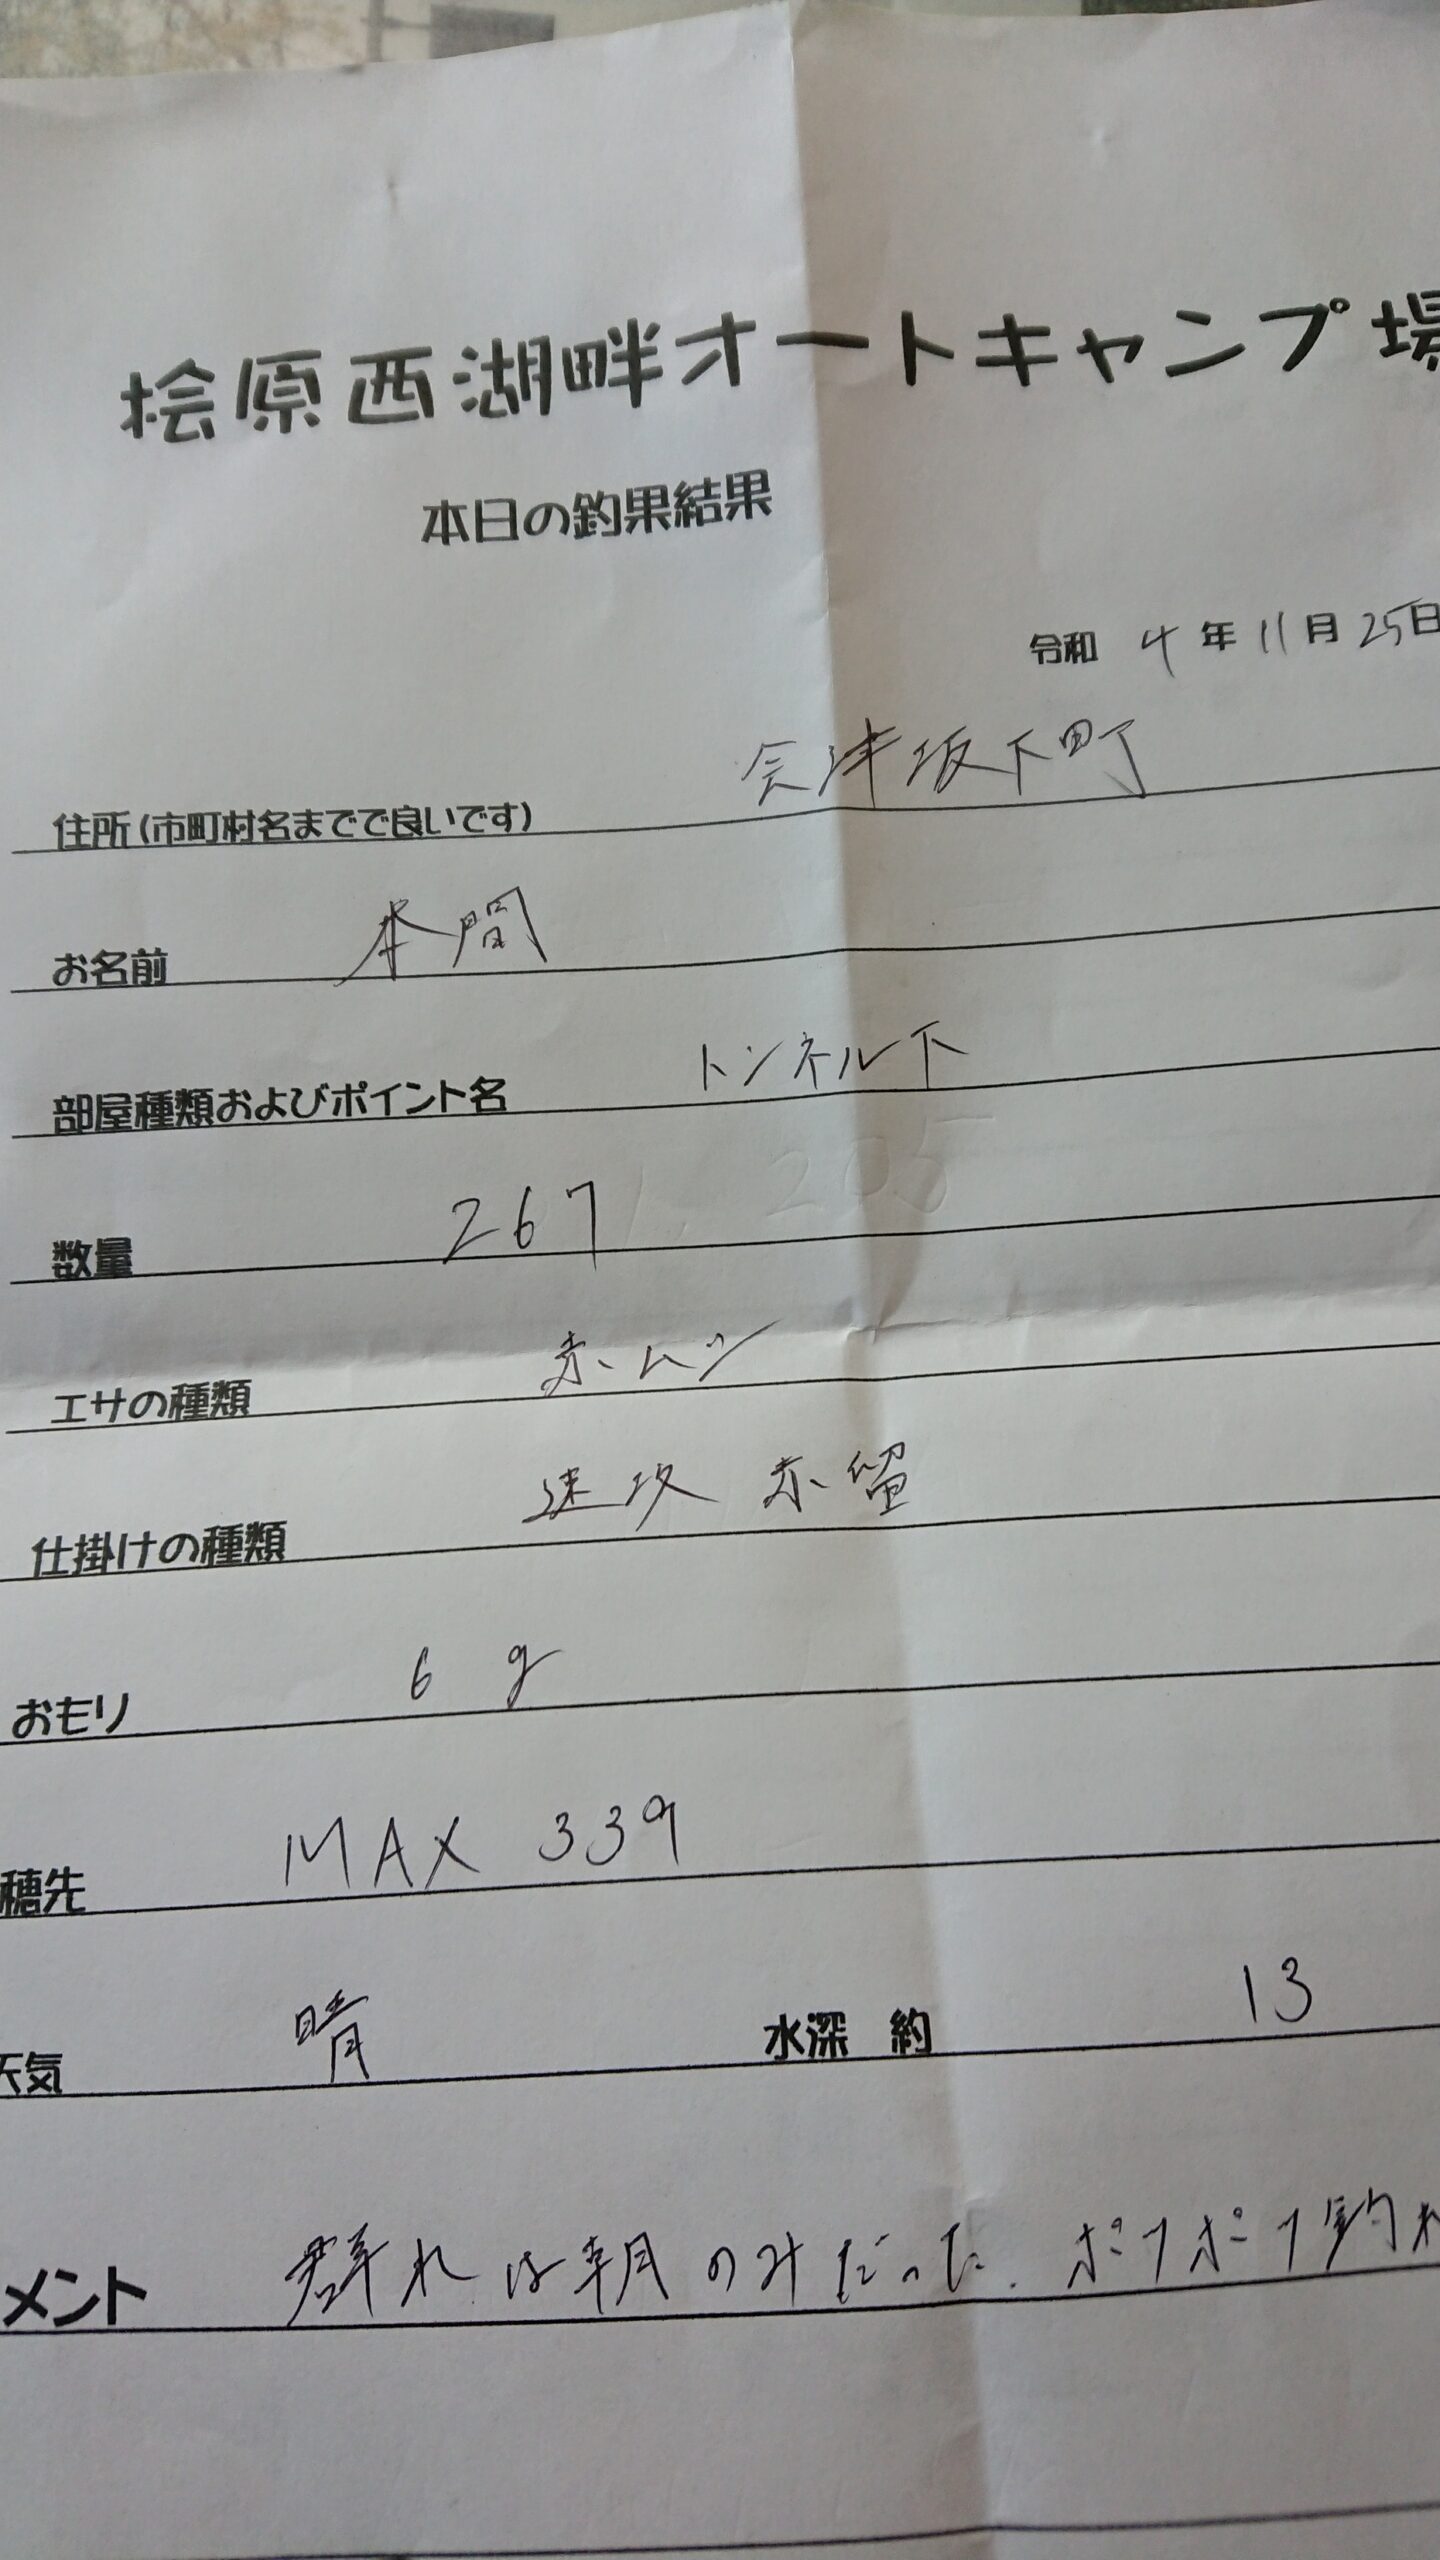 桧原西湖畔オートキャンプ場
本日の釣果結果
令和 4 年 11 月 25日
住所(市町村名までで良いです) 会津坂下町
お名前 本間
部屋種類およびポイント名 トンネル下
数量 267
エサの種類 赤ムシ
仕掛けの種類 速攻 赤留
おもり 6 g
穂先 MAX 339
天気 晴 水深 約 13
メント 群れは朝のみだった. ポツポツ釣れ